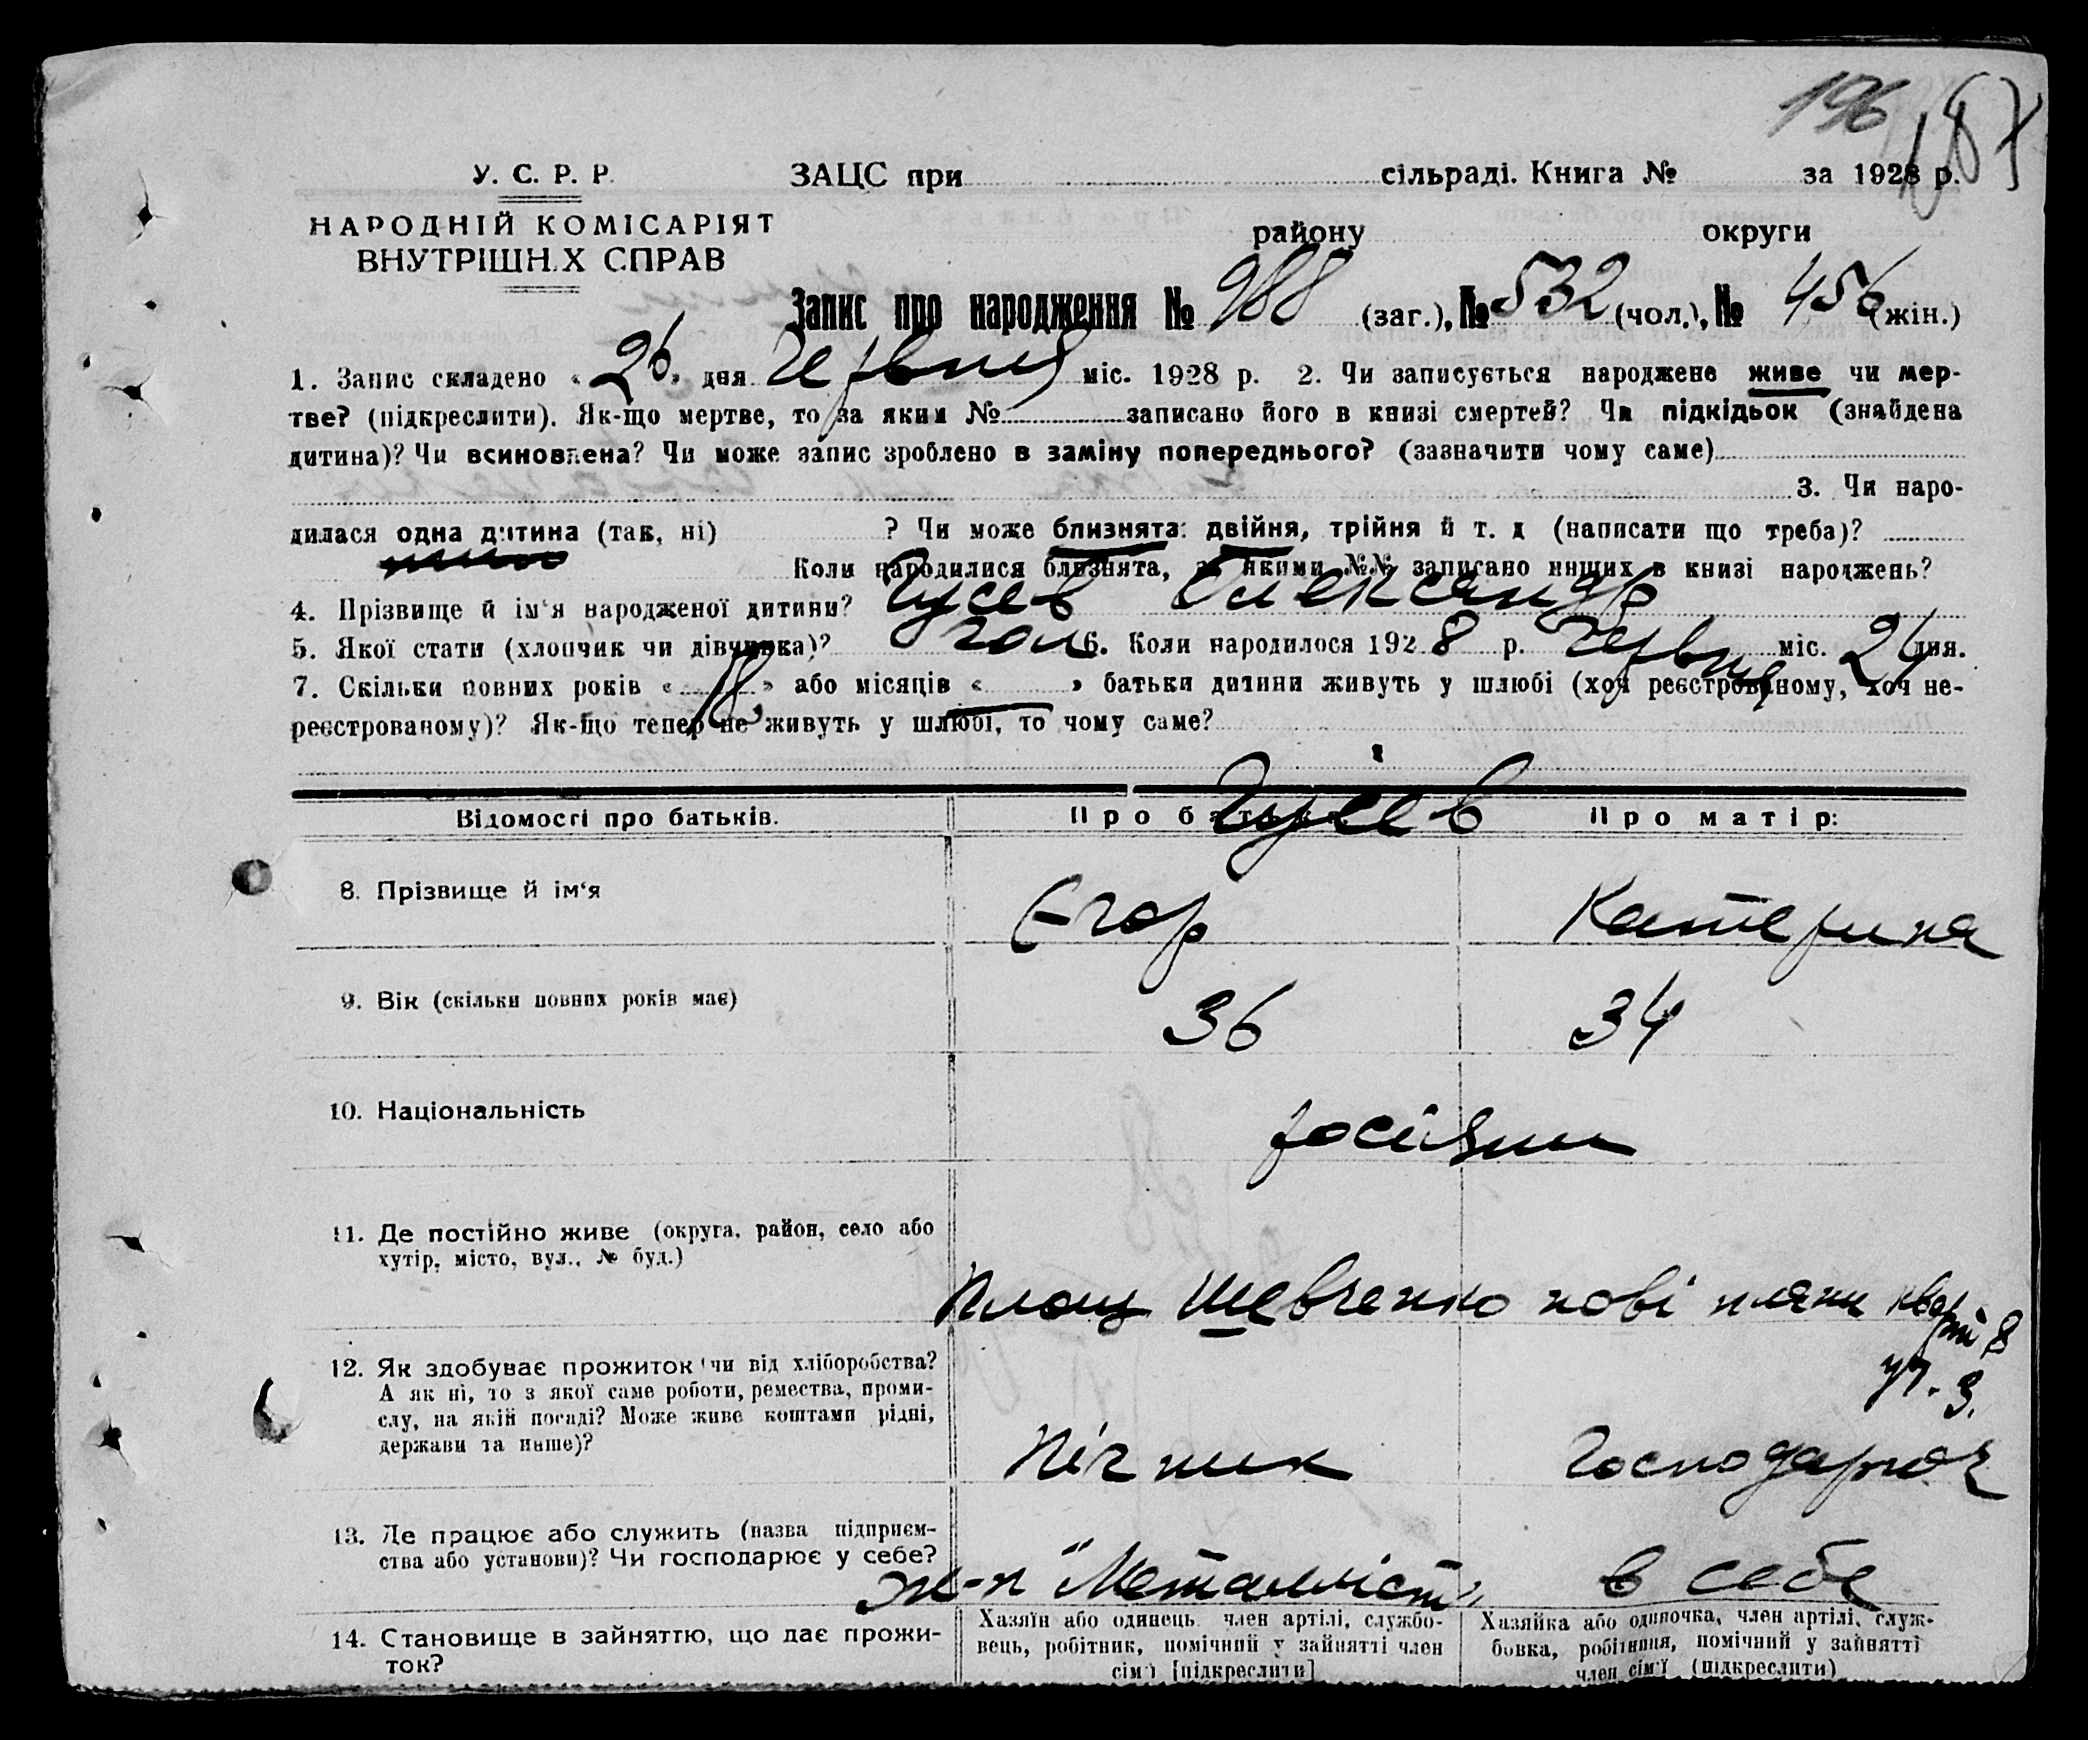 196 187
У. С. Р. Р. ЗАЦС при сільраді. Книга № за 1928 р.
НАРОДНІЙ КОМІСАРІЯТ
ВНУТРІШН.Х СПРАВ
району округи
Запис про народження № 988 (заг.), № 532 (чол.), № 456 (жін.)
1. Запис складено « 26 » дня Червня міс. 1928 р. 2. Чи записується народжене живе чи мер-
тве? (підкреслити). Як-що мертве, то за яким № записано його в книзі смертей? Чи підкідьок (знайдена
дитина)? Чи всиновлена? Чи може запис зроблено в заміну попереднього? (зазначити чому саме)
3. Чи наро-
дилася одна дитина (так, ні) ? Чи може близнята: двійня, трійня й т. д (написати що треба)?
Коли народилися близнята, за якими №№ записано инших в книзі народжень?
4. Прізвище й ім‘я народженої дитини? Гусев Олександр
5. Якої стати (хлопчик чи дівчинка)? чол 6. Коли народилося 1928 р. Червня міс. 24 дня.
7. Скільки повних років « » або місяців « » батьки дитини живуть у шлюбі (хоч реєстрованому, хоч не-
реєстрованому)? Як-що тепер не живуть у шлюбі, то чому саме?
Гусів
Відомості про батьків. Про батька Про матір:
8. Прізвище й ім‘я Єгор Катерина
9. Вік (скільки повних років має) 36 34
10. Національність росіяни
11. Де постійно живе (округа, район, село або
хутір, місто, вул., № буд.)
Площ Шевченко нові пляни кварт 8
уч. 3.
12. Як здобуває прожиток чи від хліборобства?
А як ні, то з якої саме роботи, ремества, проми-
слу, на якій посаді? Може живе коштами рідні,
держави та инше)?
Пічник Господарює
13. Де працює або служить (назва підприєм-
ства або установи)? Чи господарює у себе?
ж-п "Металліст" в себе
14. Становище в зайняттю, що дає прожи-
ток?
Хазяїн або одинець член артілі, службо-
вець, робітник, помічний у зайнятті член
сім'ї [підкреслити]
Хазяйка або одиночка, член артілі, служ-
бовка, робітниця, помічний у зайнятті
член сім'ї (підкреслити)